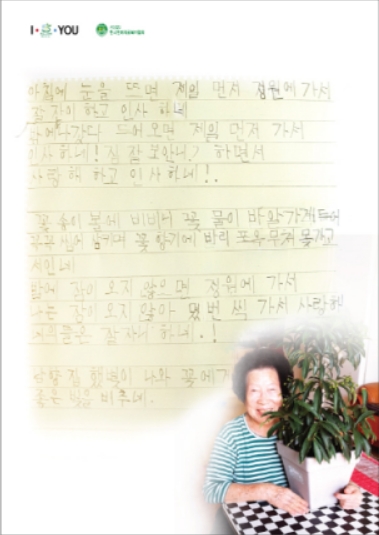 I YOU
아침에 눈을 뜨면 제일 먼저 정원에 가서
잘 잤이 하고 인사 하네
밖에 나갔다 드어오면 제일 먼저 가서
인사하네! 집 잘 보았니? 하면서
사랑해 하고 인사하네!.
꽃 송이 볼에 비비니 꽃 물이 바알가게
꽃 향기에 바리
서있네
밤에 잠이 오지 않으면 정원에 가서
나는 잠이 오지 않아 몇번 씩 가서 사랑해
잘 자니 하네.!
나와 꽃에게
좋은 빛을 비추네.